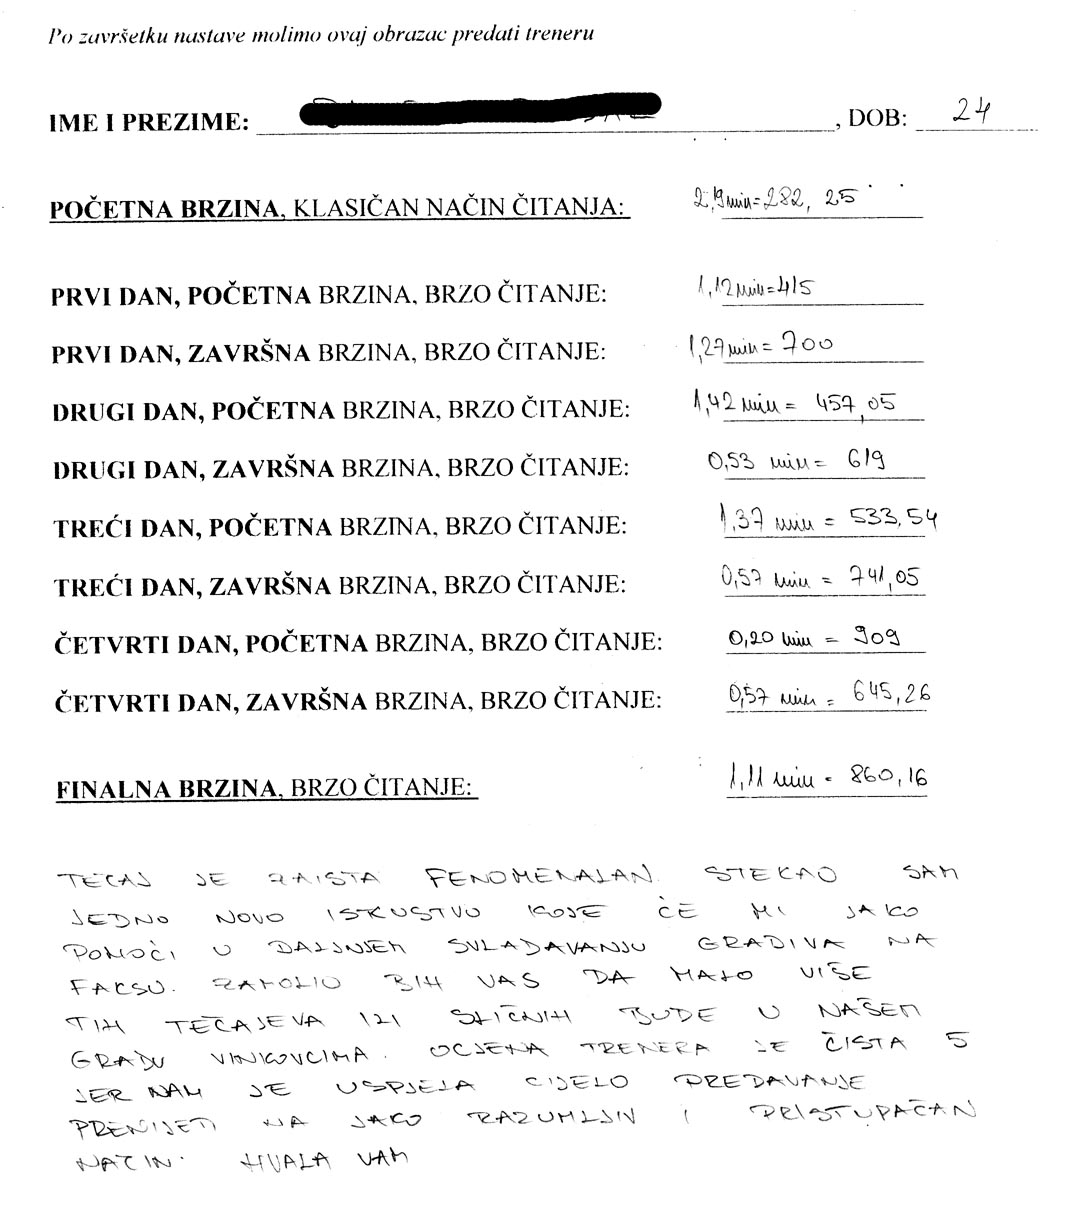 Po završetku nastave molimo ovaj obrazac predati treneru
IME I PREZIME: , DOB: 24
POČETNA BRZINA, KLASIČAN NAČIN ČITANJA: 2,9min=282,25
PRVI DAN, POČETNA BRZINA, BRZO ČITANJE: 1,12min=415
PRVI DAN, ZAVRŠNA BRZINA, BRZO ČITANJE: 1,27min=700
DRUGI DAN, POČETNA BRZINA, BRZO ČITANJE: 1,42 min= 457,05
DRUGI DAN, ZAVRŠNA BRZINA, BRZO ČITANJE: 0,53 min= 619
TREĆI DAN, POČETNA BRZINA, BRZO ČITANJE: 1,37 min = 533,54
TREĆI DAN, ZAVRŠNA BRZINA, BRZO ČITANJE: 0,57 min = 741,05
ČETVRTI DAN, POČETNA BRZINA, BRZO ČITANJE: 0,20 min = 909
ČETVRTI DAN, ZAVRŠNA BRZINA, BRZO ČITANJE: 0,57 min = 645,26
FINALNA BRZINA, BRZO ČITANJE: 1,11 min = 860,16
TEČAJ JE ZAISTA FENOMENALAN. STEKAO SAM
JEDNO NOVO ISKUSTVO KOJE ĆE MI JAKO
POMOĆI U DALJNJEM SVLADAVANJU GRADIVA NA
FAKSU. ZAMOLIO BIH VAS DA MALO VIŠE
TIH TEČAJEVA ILI SLIČNIH BUDE U NAŠEM
GRADU VINKOVCIMA. OCJENA TRENERA JE ČISTA 5
JER NAM JE USPJELA CIJELO PREDAVANJE
PRENIJETI NA JAKO RAZUMLJIV I PRISTUPAČAN
NAČIN. HVALA VAM